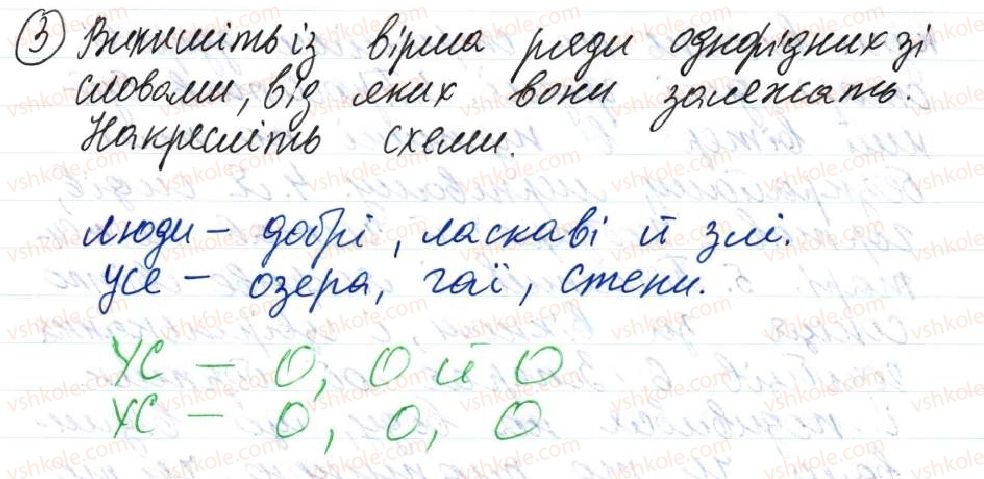 3 Випишіть із вірша ряди однорідних зі
словами, від яких вони залежать.
Накресліть схеми.
люди – добрі, ласкаві й злі.
усе – озера, гаї, степи.
УС – О, О й О
УС – О, О, О